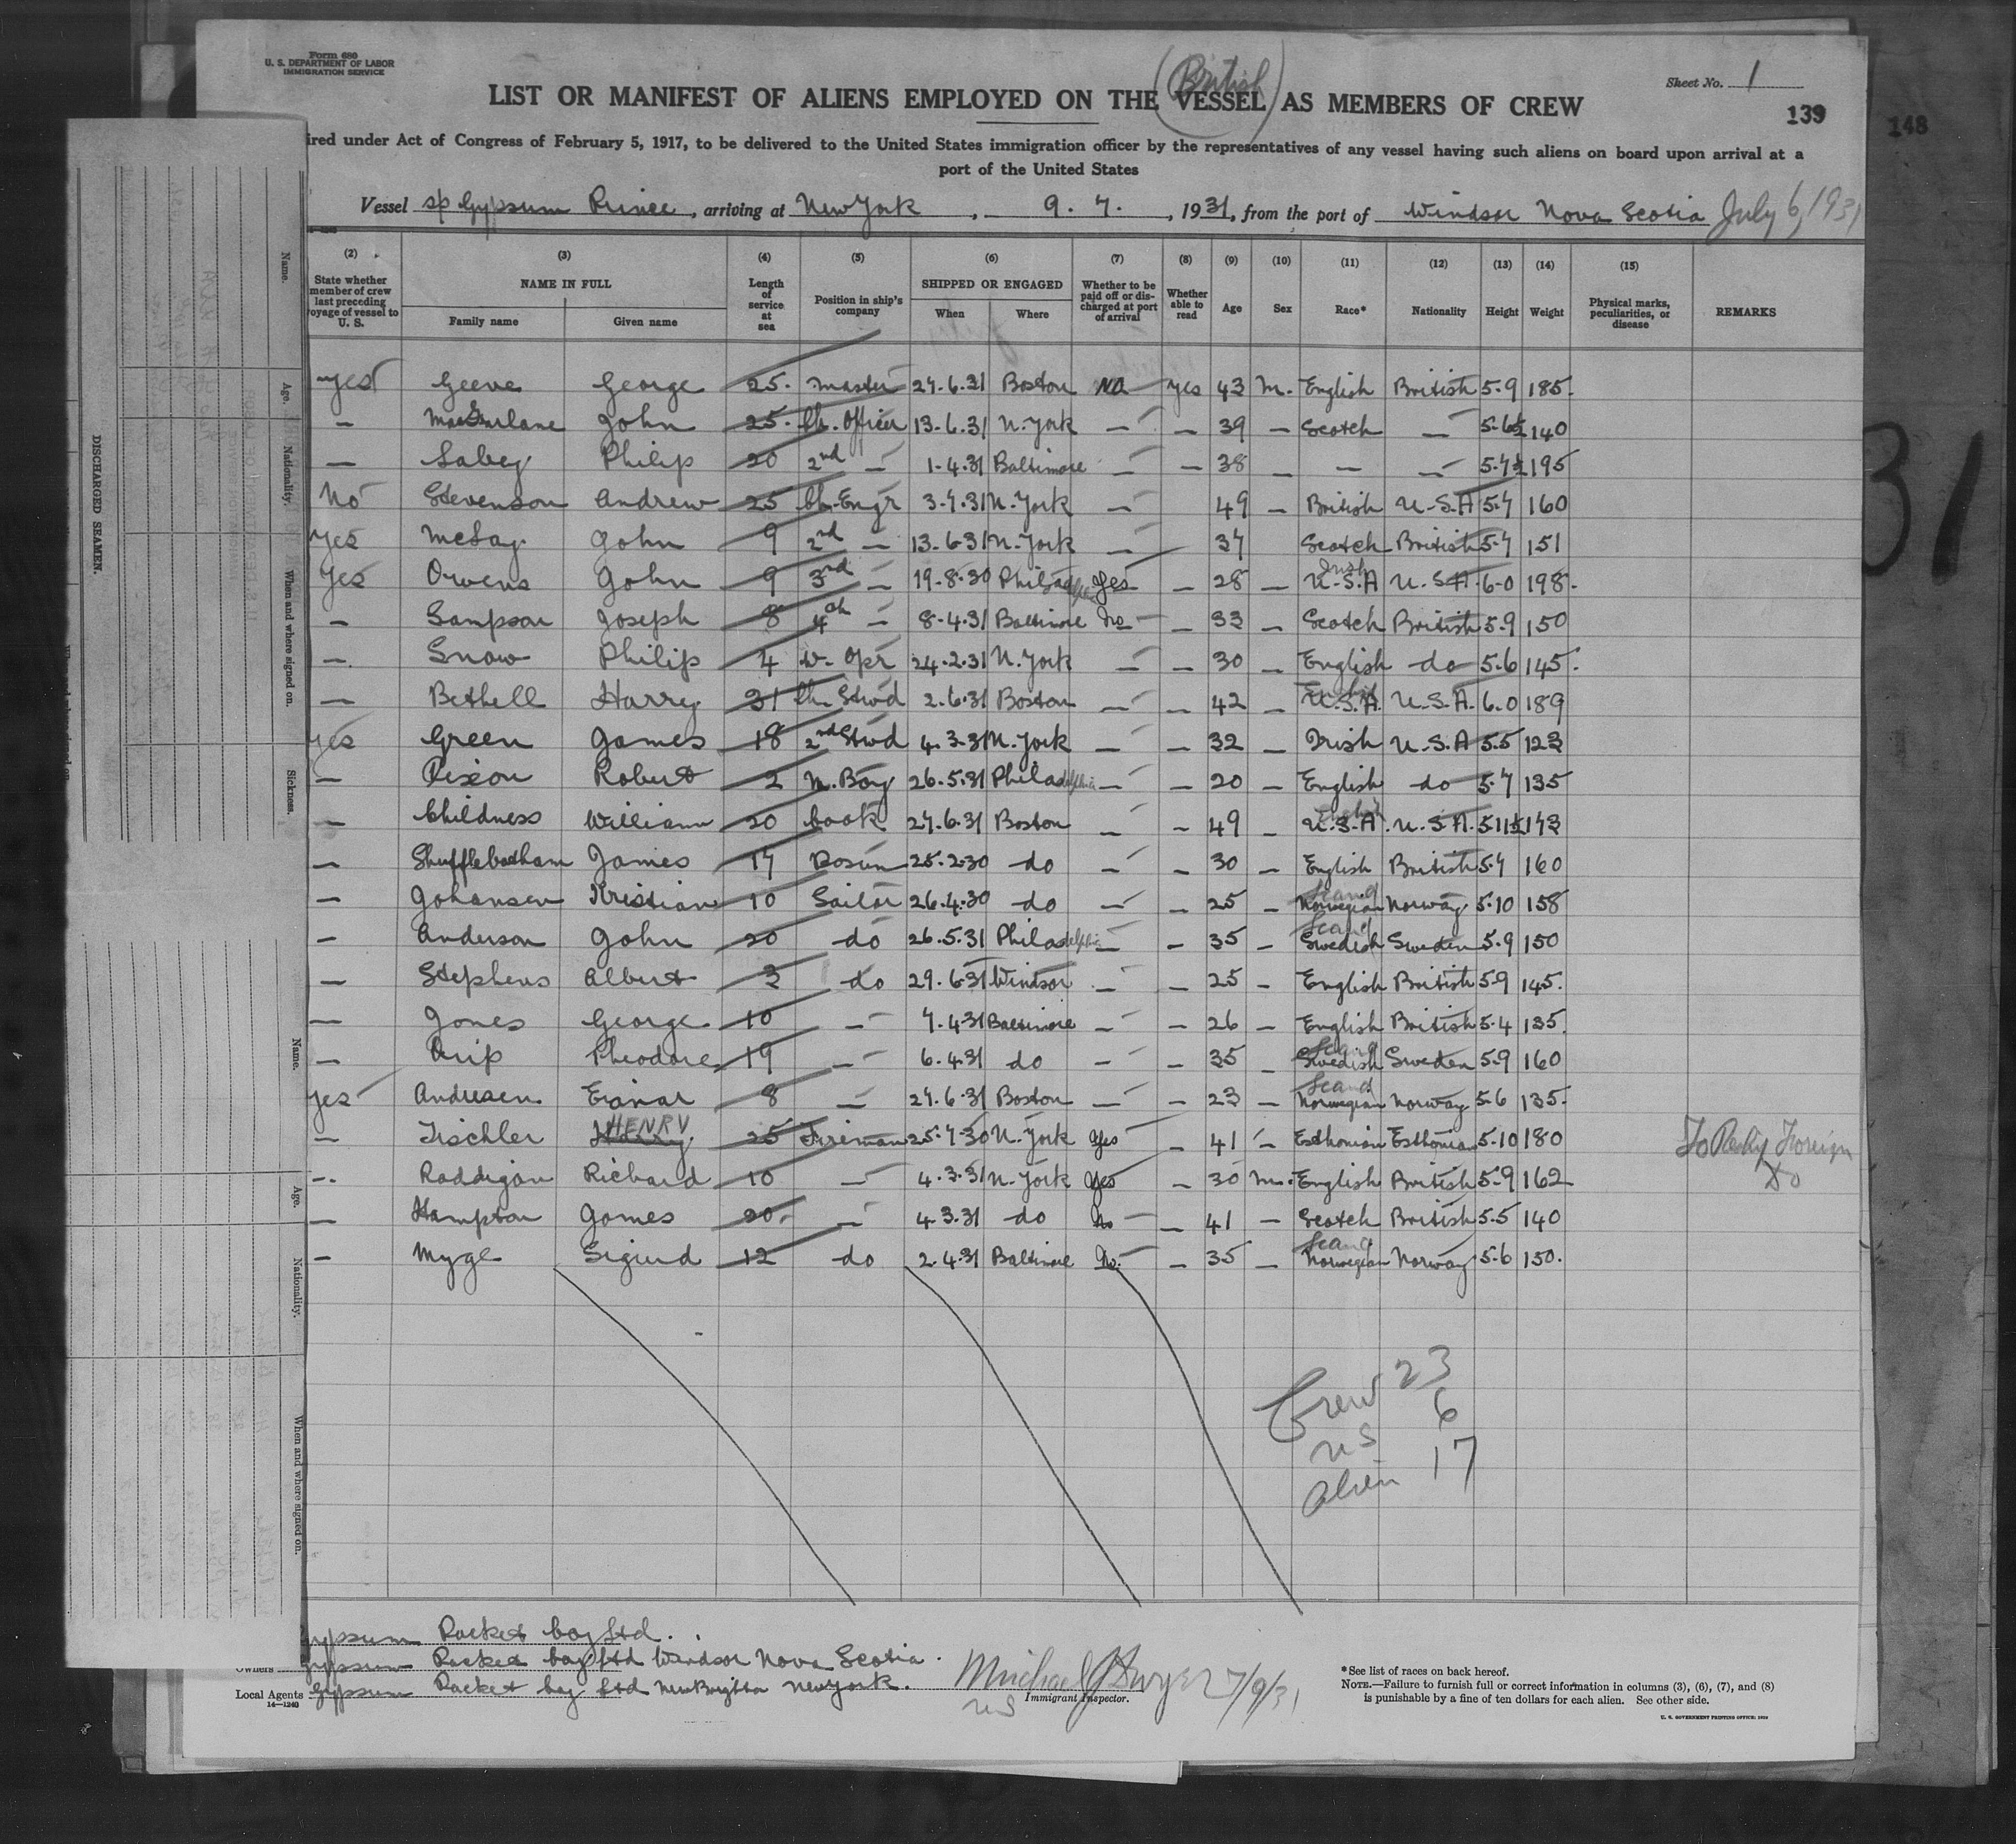 Form 680
U. S. DEPARTMENT OF LABOR
IMMIGRATION SERVICE
Sheet No. 1
(British)
LIST OR MANIFEST OF ALIENS EMPLOYED ON THE VESSEL AS MEMBERS OF CREW
139
148
ired under Act of Congress of February 5, 1917, to be delivered to the United States immigration officer by the representatives of any vessel having such aliens on board upon arrival at a
port of the United States
Vessel Gypsum Prince, arriving at New York, 9. 7., 1931, from the port of Windsor Nova Scotia July 6, 1931
(2) (3) (4) (5) (6) (7) (8) (9) (10) (11) (12) (13) (14) (15)
State whether member of crew last preceding voyage of vessel to U. S.
NAME IN FULL
Family name Given name
Length of service at sea
Position in ship's company
SHIPPED OR ENGAGED
When Where
Whether to be paid off or discharged at port of arrival
Whether able to read
Age Sex Race* Nationality Height Weight
Physical marks, peculiarities, or disease
REMARKS
Yes Geeve George 25. Master 27.6.31 Boston No Yes 43 M. English British 5.9 185.
— John 25. Ch. Officer 13.6.31 N. York — — 39 — Scotch — 5.6½ 140
— Philip 20 2nd — 1.4.31 Baltimore — — 38 — — — 5.7½ 195
No Stevenson Andrew 25 Ch. Engr 3.7.31 N. York — 49 — British U.S.A 5.7 160
Yes John 9 2nd — 13.6.31 N. York — 37 Scotch British 5.7 151
Yes Owens John 9 3rd — 19.8.30 Philadelphia Yes — 28 — U.S.A Irish U.S.A. 6-0 198.
— Sampson Joseph 8 4th — 8.4.31 Baltimore No — 33 — Scotch British 5.9 150
— Snow Philip 4 W. Opr 24.2.31 N. York — — 30 — English do 5.6 145.
— Bethell Harry 21 Ch. Stwd 2.6.31 Boston — — 42 — U.S.A. English U.S.A. 6.0 189
Yes Green James 18 2nd Stwd 4.3.31 N. York — — 32 — Irish U.S.A 5.5 123
— Dixon Robert 2 M. Boy 26.5.31 Philadelphia — — 20 — English do 5.7 135
— Childness William 20 Cook 27.6.31 Boston — — 49 — U.S.A English U.S.A. 5.11½ 173
— Shufflebotham James 17 Bosun 25.2.30 do — — 30 — English British 5.7 160
— Johansen Kristian 10 Sailor 26.4.30 do — — 25 — Norwegian Scand Norway. 5.10 158
— Anderson John 20 do 26.5.31 Philadelphia — — 35 — Swedish Scand Sweden 5.9 150
— Stephens Albert 3 do 29.6.31 Windsor — — 25 — English British 5.9 145.
— Jones George 10 — 7.4.31 Baltimore — — 26 — English British 5.4 135.
— Theodore 19 — 6.4.31 do — — 35 — Swedish Scand Sweden 5.9 160
Yes Andresen Einar 8 — 27.6.31 Boston — — 23 — Norwegian Scand Norway 5.6 135.
— Tischler HENRY 25 Fireman 25.7.30 N. York Yes — 41 — Esthonian Esthonian 5.10 180 To Foreign
— Raddigan Richard 10 — 4.3.31 N. York Yes — 30 M. English British 5.9 162 Do
— Hampton James 20. — 4.3.31 do No — 41 — Scotch British 5.5 140
— Myge Sigurd 12 do 2.4.31 Baltimore No. — 35 — Norwegian Scand Norway 5.6 150.
Crew 23
US 6
Alien 17
Gypsum Packet Coy Ltd.
Owners Gypsum Packet Coy Ltd Windsor Nova Scotia.
Local Agents Gypsum Packet Coy Ltd New Brighton New York.
14—1240
Michael J Dwyer 7/9/31
US
Immigrant Inspector.
*See list of races on back hereof.
NOTE.—Failure to furnish full or correct information in columns (3), (6), (7), and (8)
is punishable by a fine of ten dollars for each alien. See other side.
DISCHARGED SEAMEN.
Name.
Age.
Nationality.
When and where signed on.
Sickness.
Name.
Age.
Nationality.
When and where signed on.
31